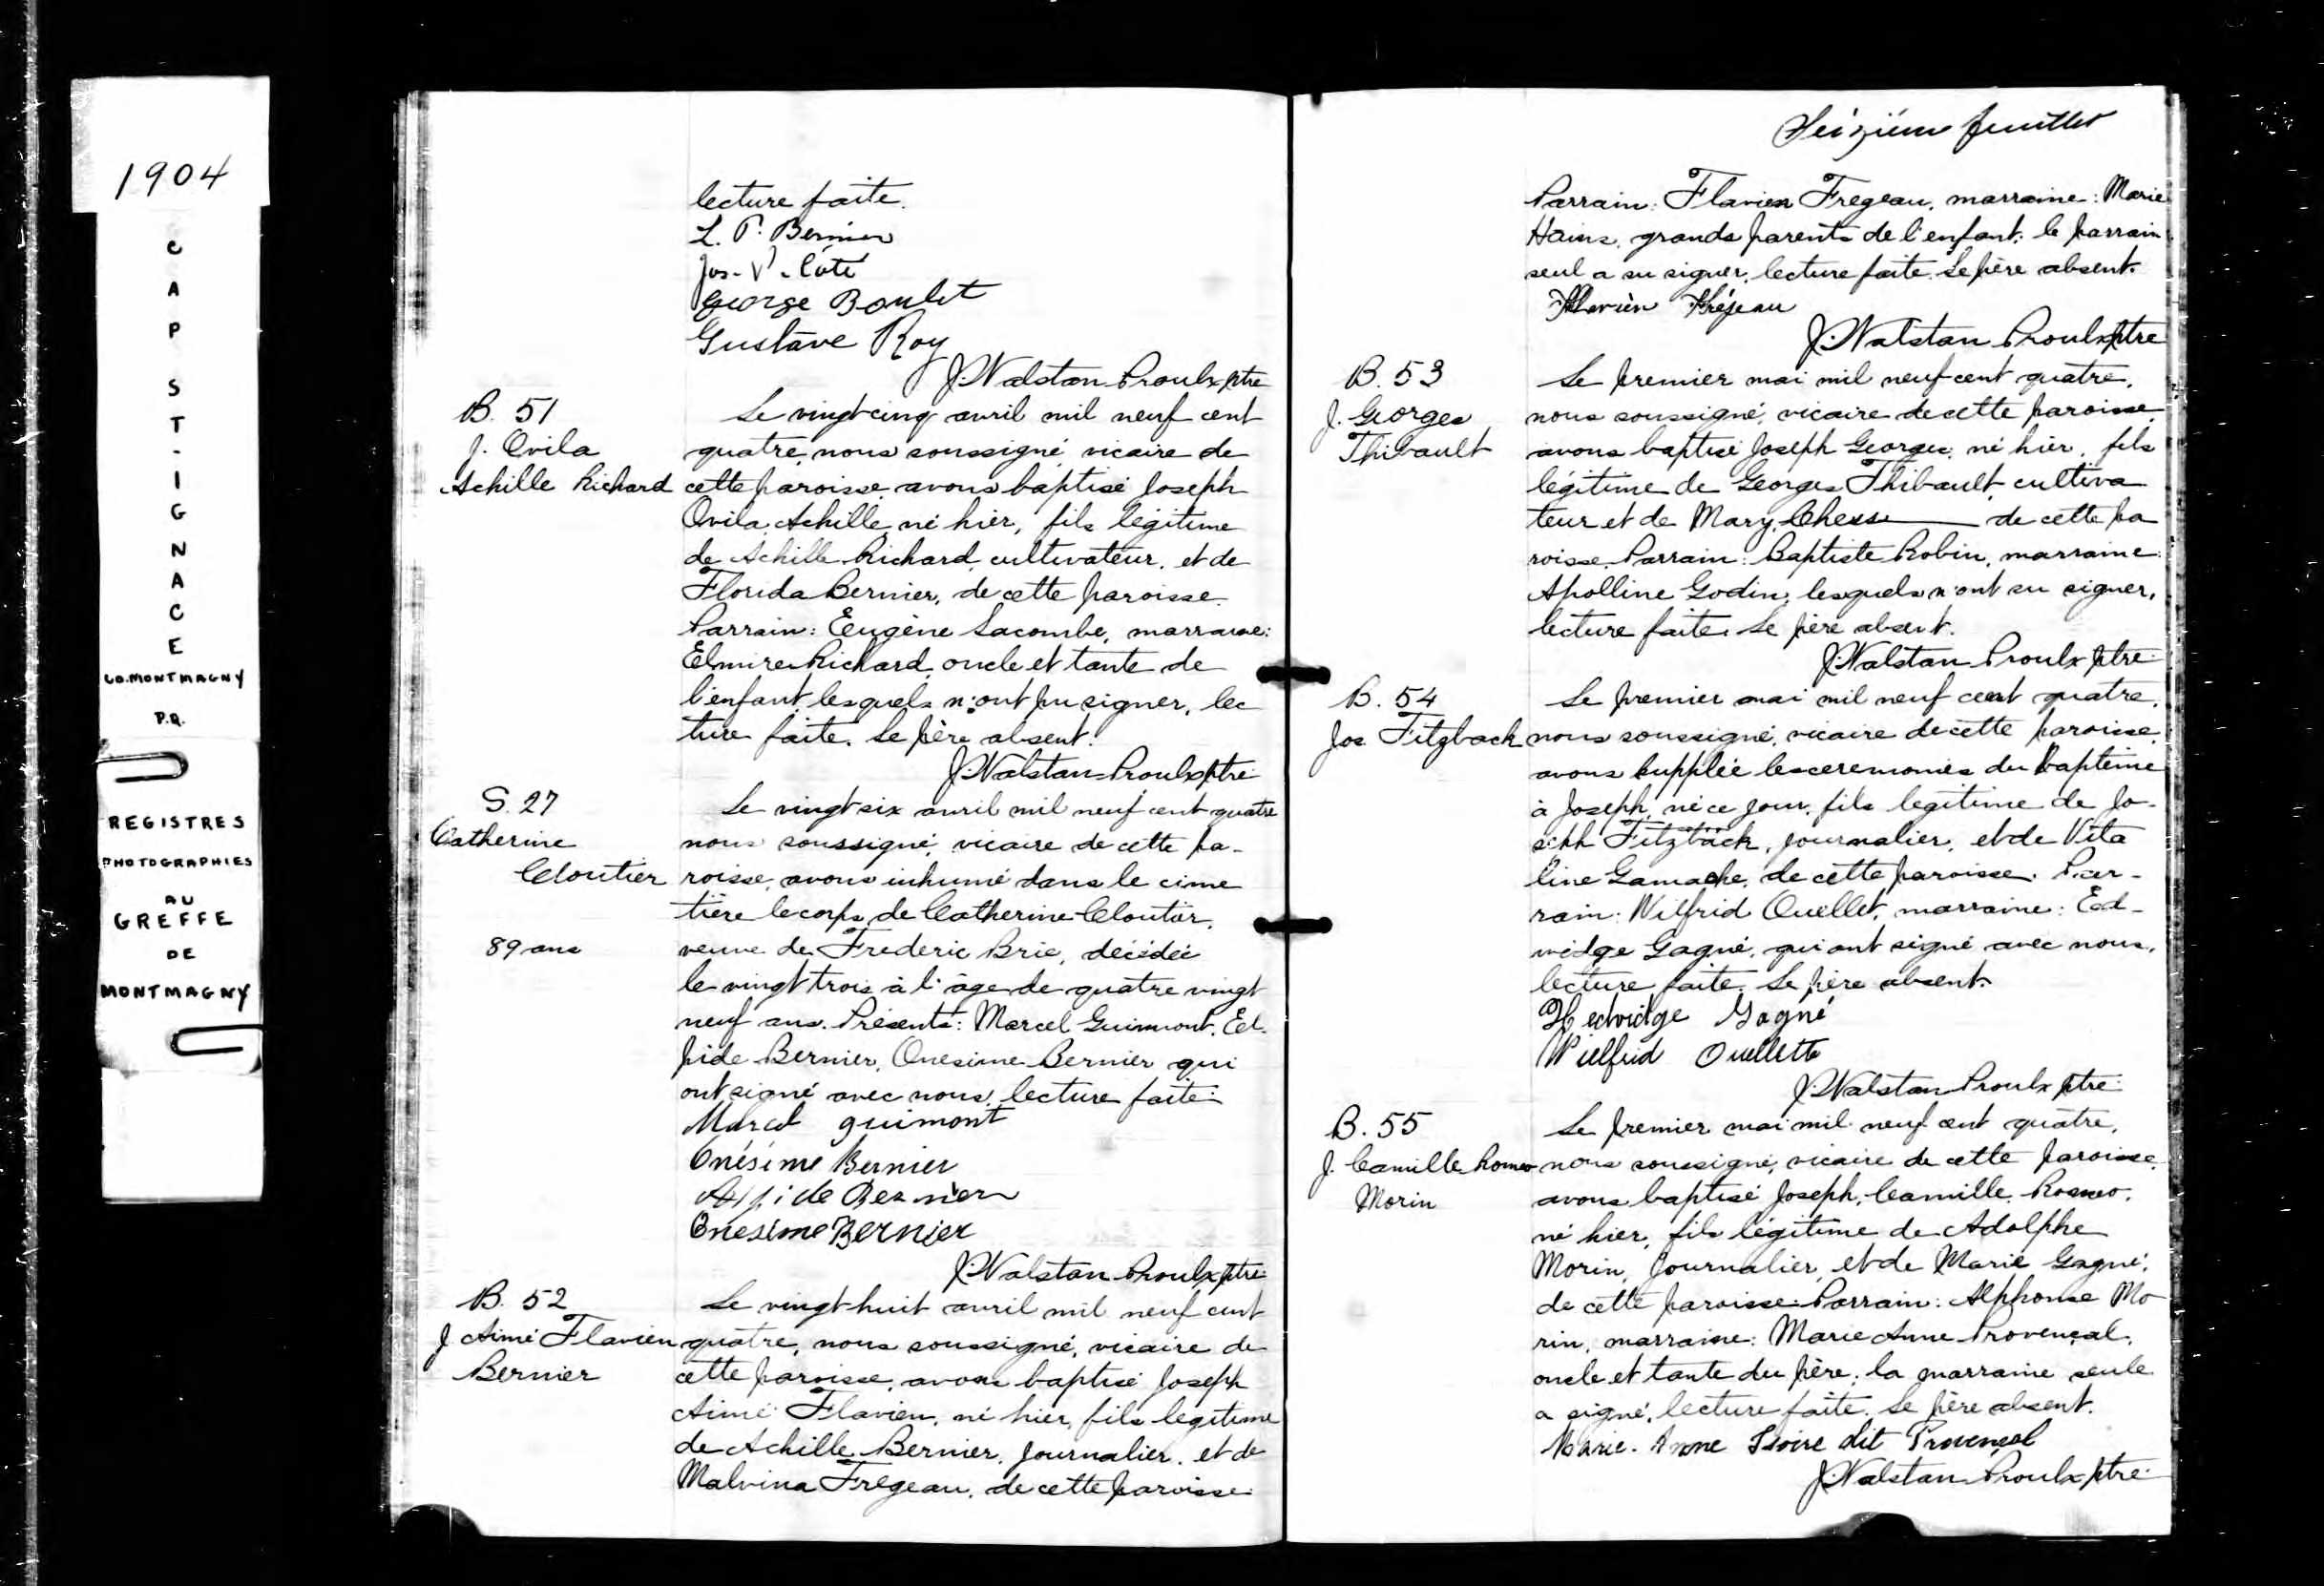 1904
CAP ST-IGNACE
CO. MONTMAGNY
P.Q.
REGISTRES
PHOTOGRAPHIES
AU
GREFFE
DE
MONTMAGNY
lecture faite.
L. P. Bernier
Jos. V. Coté
George Boulet
Gustave Roy
J. Walstan Proulx ptre
B. 51
J. Ovila
Achille Richard
Le vingt-cinq avril mil neuf cent
quatre, nous soussigné, vicaire de
cette paroisse, avons baptisé Joseph
Ovila, Achille, né hier, fils légitime
de Achille Richard, cultivateur, et de
Florida Bernier, de cette paroisse.
Parrain: Eugène Lacombe, marraine:
Elmire Richard, oncle et tante de
l'enfant, lesquels n'ont pu signer, lec
ture faite. Le père absent.
J. Walstan Proulx ptre
S. 27
Catherine
Cloutier
89 ans
Le vingt six avril mil neuf cent quatre
nous soussigné, vicaire de cette pa-
roisse, avons inhumé dans le cime
tière le corps de Catherine Cloutier,
veuve de Frederic Brie, décédée
le vingt trois à l'âge de quatre vingt
neuf ans. Présents: Marcel Guimont, El-
pide Bernier, Onesime Bernier qui
ont signé avec nous, lecture faite.
Marcel guimont
Onésime Bernier
Bernier
Onesime Bernier
J. Walstan Proulx ptre
B. 52
J. Aimé Flavien
Bernier
Le vingt-huit avril mil neuf cent
quatre, nous soussigné, vicaire de
cette paroisse, avons baptisé Joseph
Aimé Flavien, né hier, fils legitime
de Achille Bernier, journalier, et de
Malvina Fregeau, de cette paroisse
Seizième feuillet
Parrain: Flavien Fregeau, marraine: Marie
Hains, grands parents de l'enfant; le parrain
seul a su signer, lecture faite. Le père absent.
Flavien Fréjeau
J. Walstan Proulx ptre
B. 53
J. Georges
Thibault
Le premier mai mil neuf cent quatre,
nous soussigné, vicaire de cette paroisse,
avons baptisé Joseph Georges, né hier, fils
légitime de Georges Thibault, cultiva
teur et de Mary Chesse de cette pa
roisse. Parrain: Baptiste Robin, marraine:
Apolline Godin, lesquels n'ont su signer,
lecture faite. Le père absent.
J. Walstan Proulx ptre
B. 54
Jos. Fitzback
Le premier mai mil neuf cent quatre,
nous soussigné, vicaire de cette paroisse,
avons supplée les ceremonies du Baptême
à Joseph, né ce jour, fils legitime de Jo-
seph Fitzback, journalier, et de Vita
line Gamache, de cette paroisse. Par-
rain: Wilfrid Ouellet, marraine: Ed-
widge Gagné, qui ont signé avec nous,
lecture faite. Le père absent.
Hedvidge Gagné
Wielfrid Ouellette
J. Walstan Proulx ptre
B. 55
J. Camille Romeo
Morin
Le premier mai mil neuf cent quatre,
nous soussigné, vicaire de cette paroisse,
avons baptisé Joseph, Camille, Romeo,
né hier, fils légitime de Adolphe
Morin, journalier, et de Marie Gagné,
de cette paroisse. Parrain: Alphonse Mo
rin, marraine: Marie Anne Provençal,
oncle et tante du père; la marraine seule
a signé, lecture faite. Le père absent.
Marie-Anne Isoire dit Provençal
J. Walstan Proulx ptre